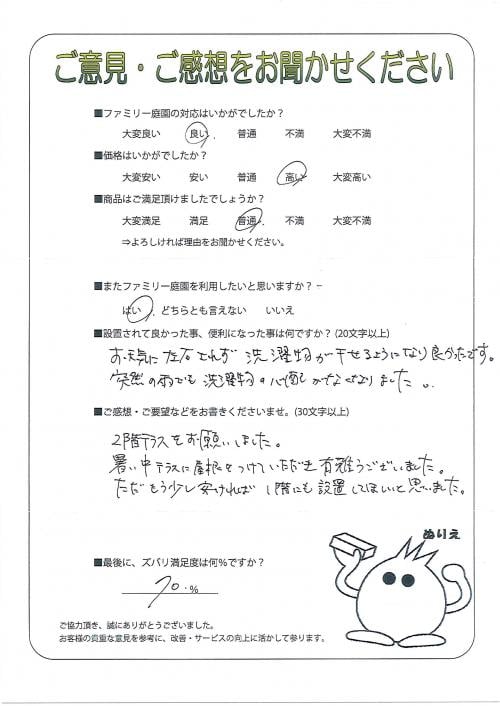 ご意見・ご感想をお聞かせください
■ファミリー庭園の対応はいかがでしたか？
大変良い 良い 普通 不満 大変不満
■価格はいかがでしたか？
大変安い 安い 普通 高い 大変高い
■商品はご満足頂けましたでしょうか？
大変満足 満足 普通 不満 大変不満
⇒よろしければ理由をお聞かせください。
■またファミリー庭園を利用したいと思いますか？
はい どちらとも言えない いいえ
■設置されて良かった事、便利になった事は何ですか？(20文字以上)
お天気に左右されず 洗濯物が干せるようになり良かったです。
突然の雨でも洗濯物の心配がなくなりました。
■ご感想・ご要望などをお書きくださいませ。(30文字以上)
2階テラスをお願いしました。
暑い中テラスに屋根をつけていただき有難うございました。
ただもう少し安ければ 1階にも設置してほしいと思いました。
ぬりえ
■最後に、ズバリ満足度は何％ですか？
70.％
ご協力頂き、誠にありがとうございました。
お客様の貴重な意見を参考に、改善・サービスの向上に活かして参ります。